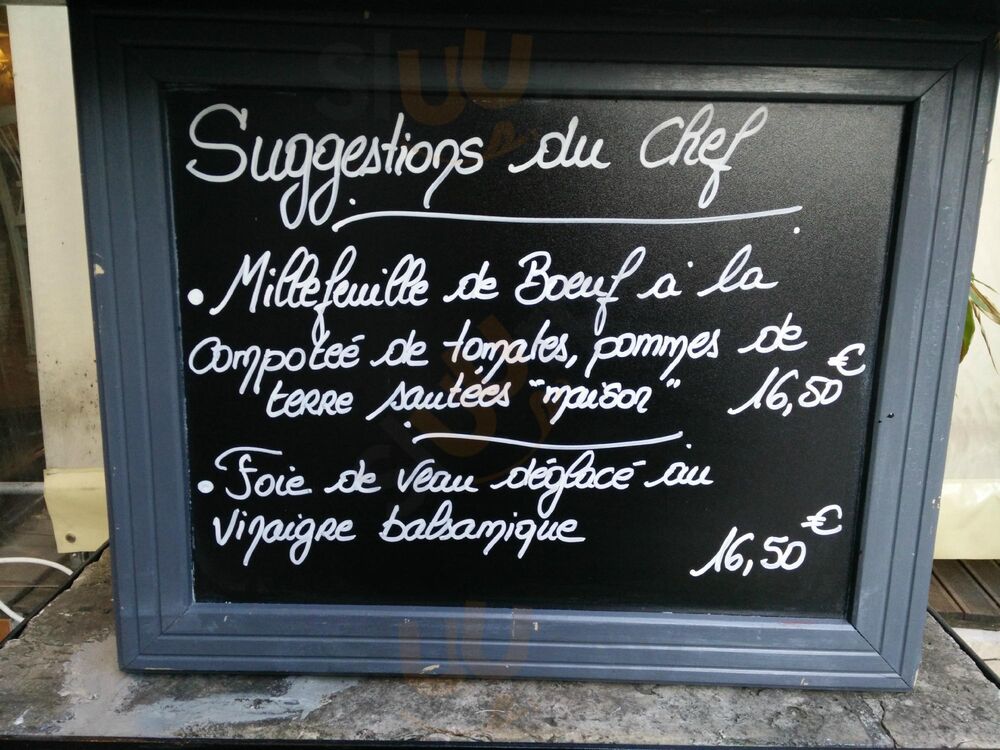 Suggestions du Chef
• Millefeuille de Boeuf à la
compoteé de tomates, pommes de
terre sautées "maison" 16,50€
• Foie de veau déglacé au
vinaigre balsamique
16,50€